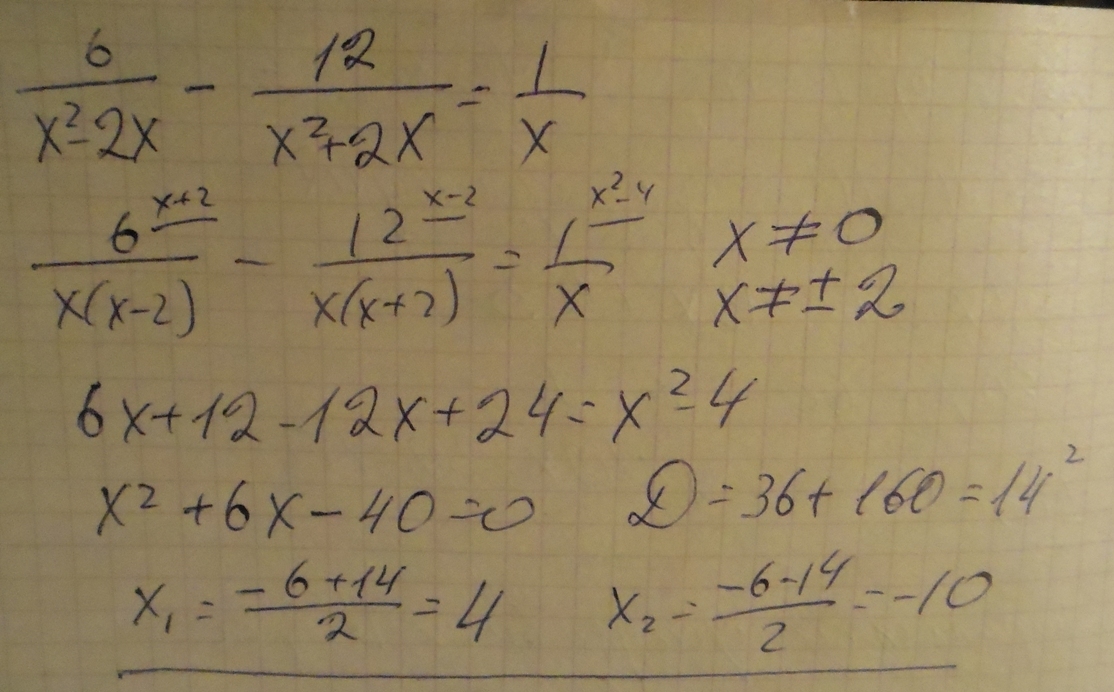 6/(x²-2x) - 12/(x²+2x) = 1/x
6^(x+2)/(x(x-2)) - 12^(x-2)/(x(x+2)) = 1^(x²-4)/x x≠0
x≠±2
6x+12-12x+24=x²-4
x²+6x-40=0 D=36+160=14²
x₁=(-6+14)/2=4 x₂=(-6-14)/2=-10